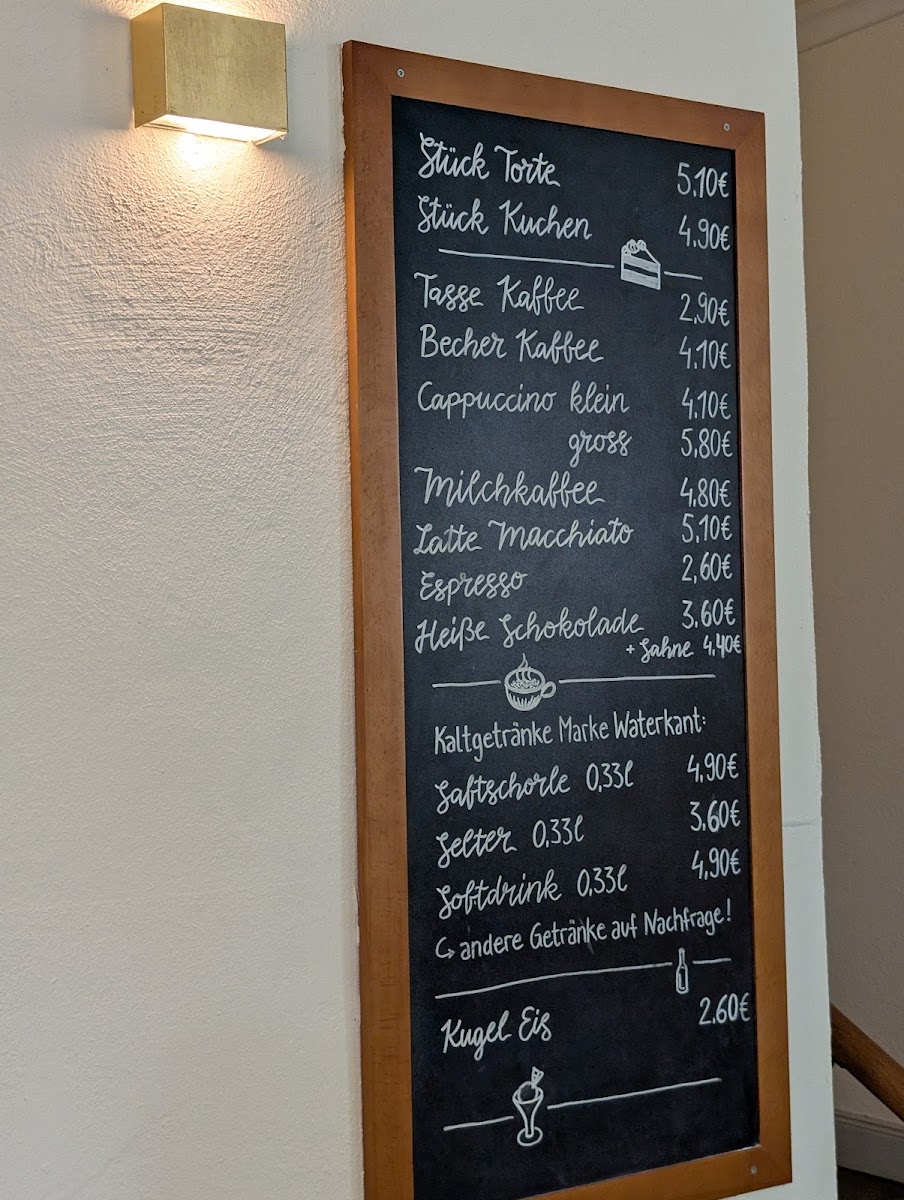 Stück Torte 5.10€
Stück Kuchen 4.90€
Tasse Kaffee 2,90€
Becher Kaffee 4.10€
Cappuccino klein 4.10€
gross 5,80€
Milchkaffee 4,80€
Latte Macchiato 5,10€
Espresso 2,60€
Heiße Schokolade 3.60€
+ Sahne 4,40€
Kaltgetränke Marke Waterkant:
Saftschorle 0,33l 4,90€
Selter 0,33l 3,60€
Softdrink 0,33l 4,90€
↪ andere Getränke auf Nachfrage!
Kugel Eis 2.60€